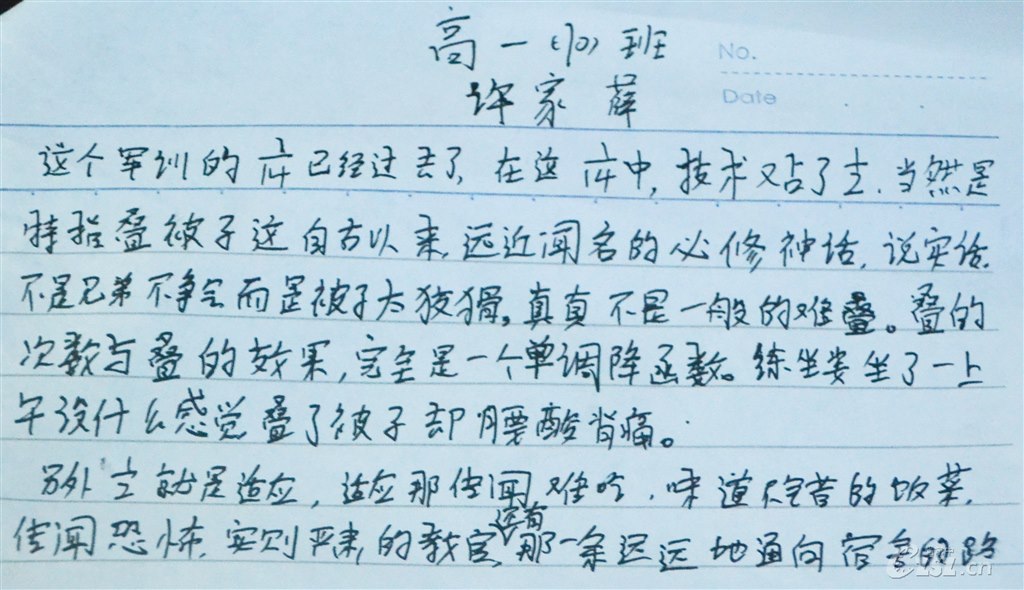 高一(10)班
No.
许家薛
Date
这个军训的1/14已经过去了,在这1/14中,技术又占了1/2.当然是
特指叠被子这自古以来,远近闻名的必修神话,说实话,
不是兄弟不争气而是被子太狡猾,真真不是一般的难叠。叠的
次数与叠的效果,完全是一个单调降函数。练坐姿坐了一上
午没什么感觉叠了被子却腰酸背痛。
另外1/2就是适应,适应那传闻难吃.味道的饭菜,
传闻恐怖,实则严肃的教官,还有那一条迟远地通向宿舍的路